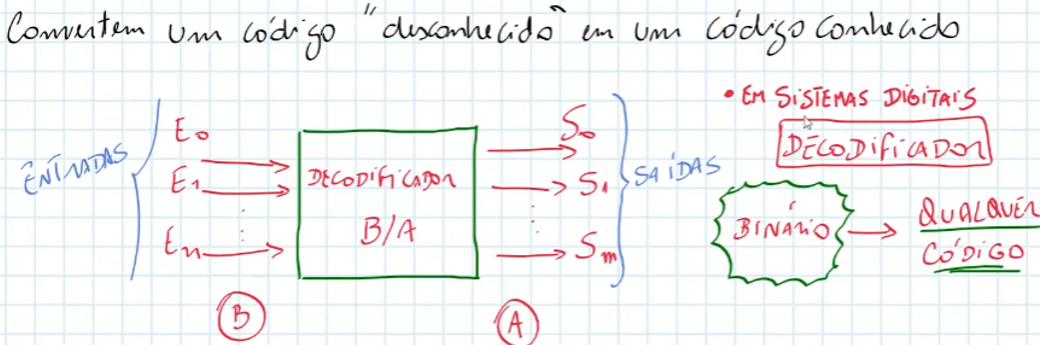 Convertem um código "desconhecido" em um código conhecido
ENTRADAS
E0
E1
⋮
En
B
DECODIFICADOR
B/A
S0
S1
⋮
Sm
SAÍDAS
A
• EM SISTEMAS DIGITAIS
DECODIFICADOR
BINÁRIO → QUALQUER
CÓDIGO